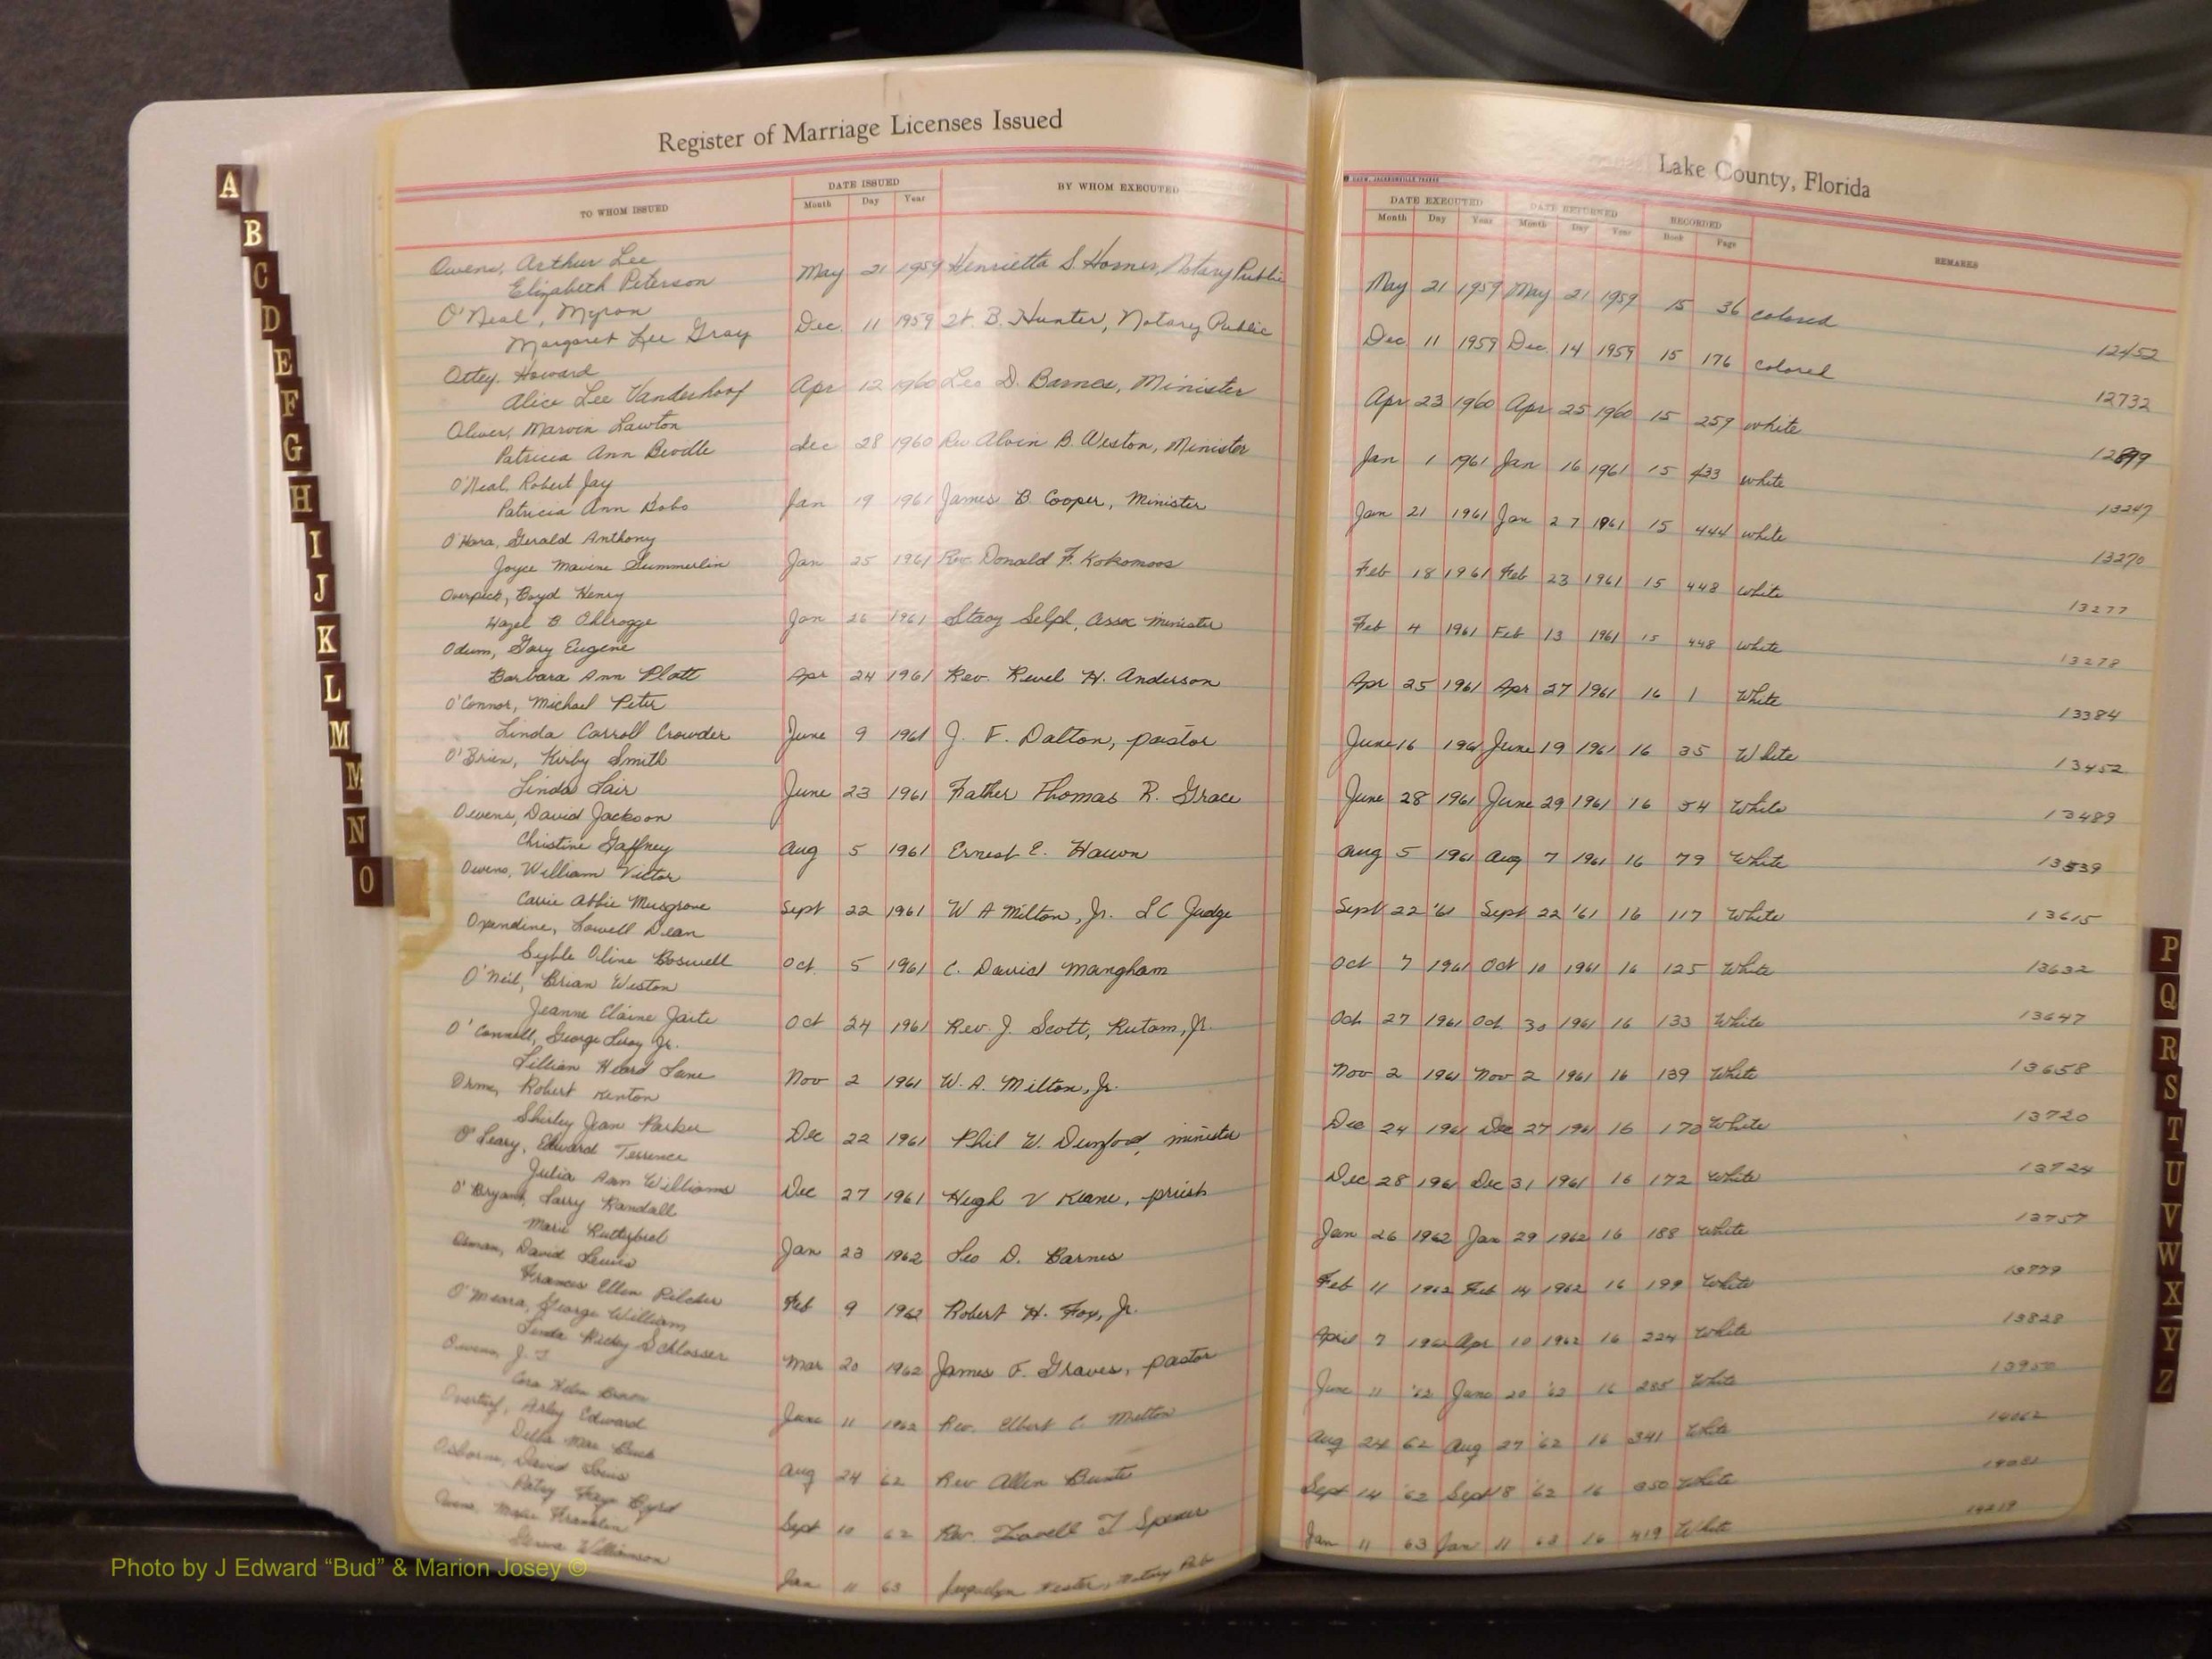 Register of Marriage Licenses Issued
Lake County, Florida
TO WHOM ISSUED DATE ISSUED BY WHOM EXECUTED
Month Day Year
DATE EXECUTED DATE RETURNED RECORDED REMARKS
Month Day Year Month Day Year Book Page
Owens, Arthur Lee
Elizabeth Peterson May 21 1959 Henrietta S. Horner, Notary Public May 21 1959 May 21 1959 15 36 colored 12452
O'Neal, Myron
Margaret Lee Gray Dec. 11 1959 B. Hunter, Notary Public Dec 11 1959 Dec. 14 1959 15 176 colored 12732
Ottey, Howard
Alice Lee Vanderhoof Apr 12 1960 Leo D. Barnes, Minister Apr 23 1960 Apr 25 1960 15 259 white 12899
Oliver, Marvin Lawton
Patricia Ann Dec 28 1960 Rev Alvin B. Weston, Minister Jan 1 1961 Jan 16 1961 15 433 white 13247
O'Neal, Robert Jay
Patricia Ann Jan 19 1961 James B Cooper, Minister Jan 21 1961 Jan 27 1961 15 444 white 13270
O'Hara, Gerald Anthony
Joyce Maxine Summerlin Jan 25 1961 Rev Donald F. Kokomoos Feb 18 1961 Feb 23 1961 15 448 white 13277
Overpeck, Boyd Henry
Hazel B Ohlrogge Jan 26 1961 Stacy Selph, Assoc Minister Feb 4 1961 Feb 13 1961 15 448 white 13278
Odum, Gary Eugene
Barbara Ann Platt Apr 24 1961 Rev. Revel H. Anderson Apr 25 1961 Apr 27 1961 16 1 White 13384
O'Connor, Michael Peter
Linda Carroll Crowder June 9 1961 J. F. Dalton, pastor June 16 1961 June 19 1961 16 35 White 13452
O'Brien, Kirby Smith
Linda Lair June 23 1961 Father Thomas R. Grace June 28 1961 June 29 1961 16 54 White 13489
Owens, David Jackson
Christine Gaffney Aug 5 1961 Ernest E. Aug 5 1961 Aug 7 1961 16 79 White 13539
Owens, William Victor
Carrie Abbie Musgrove Sept 22 1961 W A Milton, Jr. L C Judge Sept 22 '61 Sept 22 '61 16 117 White 13615
Oxendine, Lowell Dean
Syble Oline Boswell Oct. 5 1961 C. David Mangham Oct 7 1961 Oct 10 1961 16 125 White 13632
O'Neil, Brian Weston
Jeanne Elaine Jaite Oct 24 1961 Rev. J. Scott, Rutam, Jr. Oct 27 1961 Oct. 30 1961 16 133 White 13647
O'Connell, George Leroy Jr.
Lillian Heard Lane Nov 2 1961 W. A. Milton, Jr. Nov 2 1961 Nov 2 1961 16 139 White 13658
Orme, Robert Kenton
Shirley Jean Parker Dec 22 1961 Phil W. Dunford, minister Dec 24 1961 Dec 27 1961 16 170 White 13720
O'Leary, Edward Terrence
Julia Ann Williams Dec 27 1961 Hugh V Keane, priest Dec 28 1961 Dec 31 1961 16 172 White 13724
O'Bryant, Larry Randall
Marie Jan 23 1962 Leo D. Barnes Jan 26 1962 Jan 29 1962 16 188 White 13757
Osman, David Lewis
Frances Ellen Pilcher Feb 9 1962 Robert H. Fox, Jr. Feb 11 1962 Feb 14 1962 16 199 White 13779
O'Meara, George William
Linda Rickey Schlosser Mar 20 1962 James F. Graves, pastor April 7 1962 Apr 10 1962 16 224 White 13828
Owens, J. T
Cora Helen June 11 1962 Rev. Elbert C. June 11 '62 June 20 '62 16 285 White 13950
Overturf, Arley Edward
Della Mae Buck Aug 24 '62 Rev Allen Aug 24 62 Aug 27 '62 16 341 White 14062
Osborne, David Louis
Patsy Faye Byrd Sept 10 62 Rev. Lovell T Spencer Sept 14 '62 Sept 18 '62 16 350 White 14081
Owens, Franklin
Williamson Jan 11 63 Notary Pub Jan 11 63 Jan 11 63 16 419 White 14219
A
B
C
D
E
F
G
H
I
J
K
L
M
M
N
O
P
Q
R
S
T
U
V
W
X
Y
Z
Photo by J Edward “Bud” & Marion Josey ©